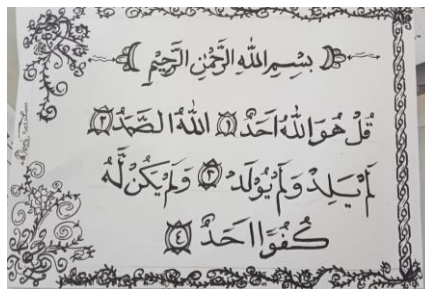 بِسْمِ اللهِ الرَّحْمٰنِ الرَّحِيْمِ
قُلْ هُوَ اللهُ اَحَدٌ ١ اللهُ الصَّمَدُ ٢
لَمْ يَلِدْ وَلَمْ يُوْلَدْ ٣ وَلَمْ يَكُنْ لَّهُ
كُفُوًا اَحَدٌ ٤